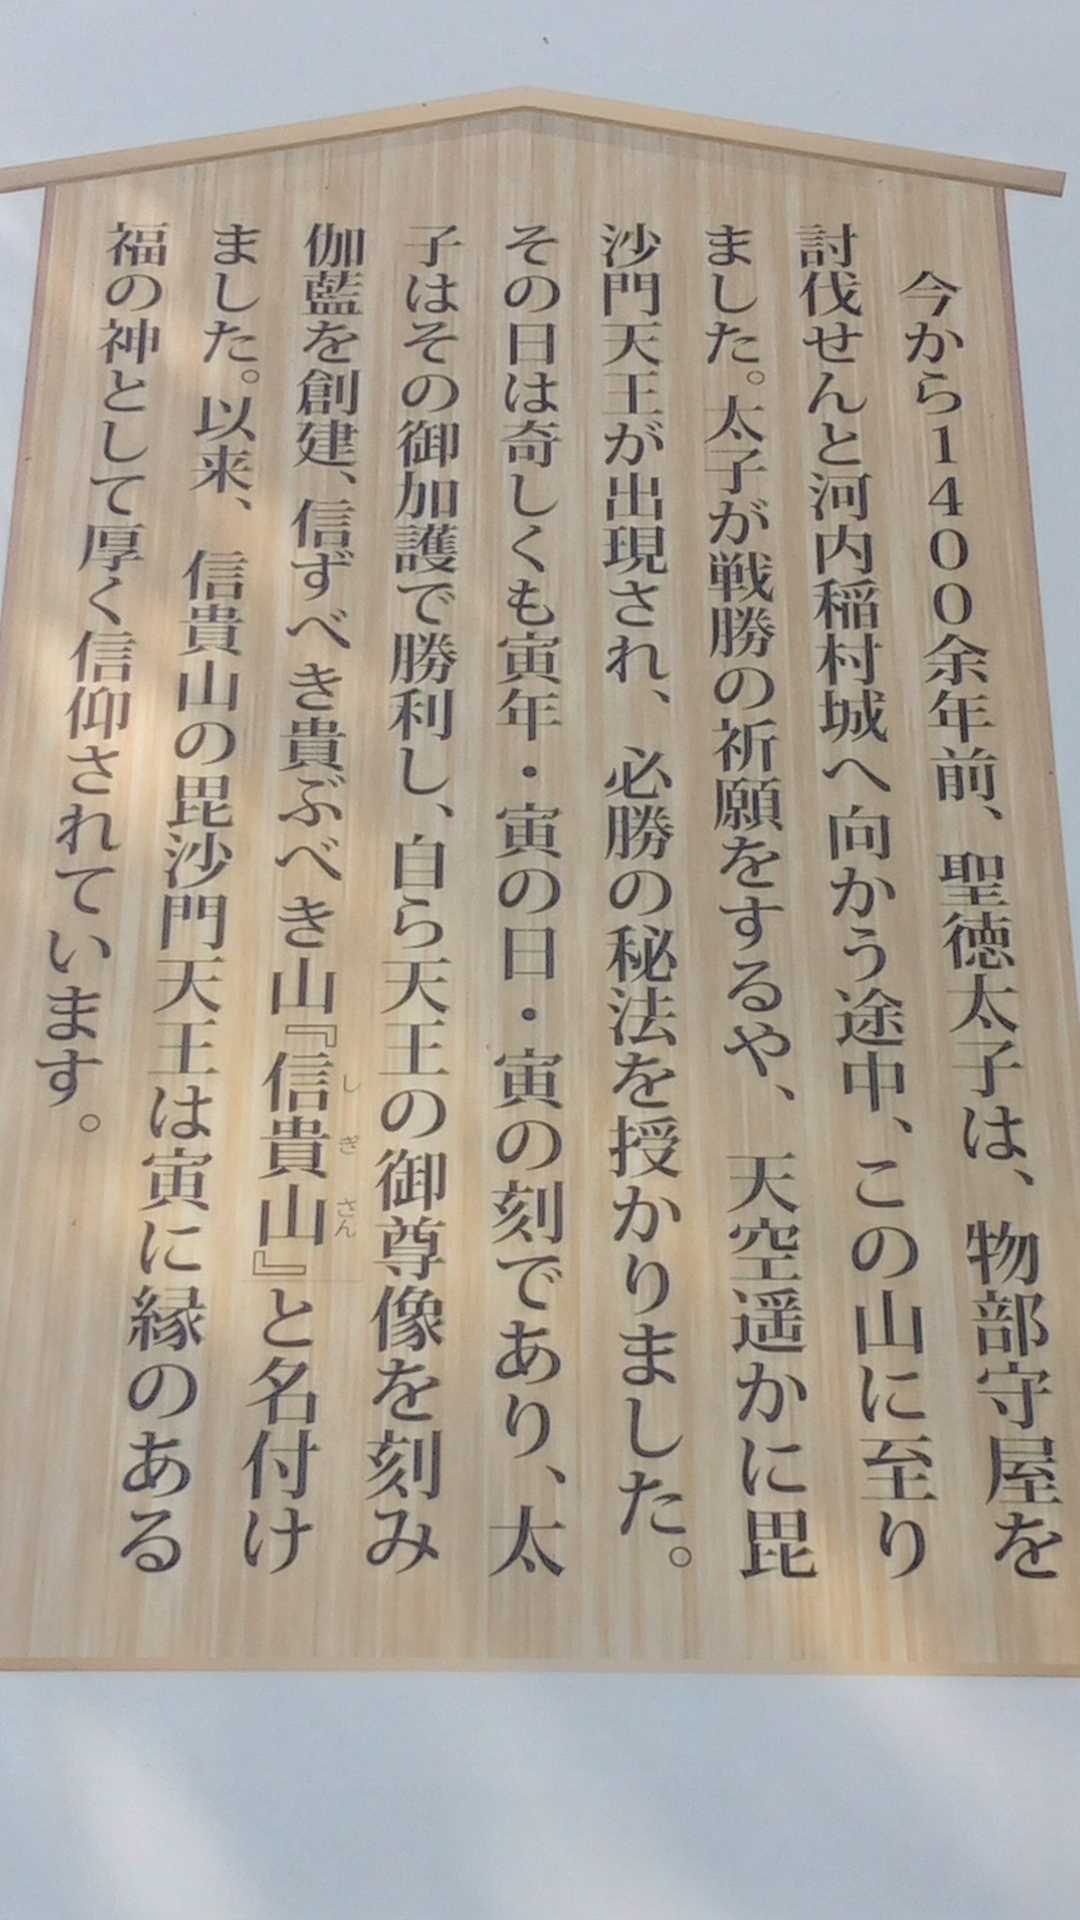 今から1400余年前、聖徳太子は、物部守屋を
討伐せんと河内稲村城へ向かう途中、この山に至り
ました。太子が戦勝の祈願をするや、天空遥かに毘
沙門天王が出現され、必勝の秘法を授かりました。
その日は奇しくも寅年・寅の日・寅の刻であり、太
子はその御加護で勝利し、自ら天王の御尊像を刻み
伽藍を創建、信ずべき貴ぶべき山『信貴山』と名付け
しぎさん
ました。以来、信貴山の毘沙門天王は寅に縁のある
福の神として厚く信仰されています。